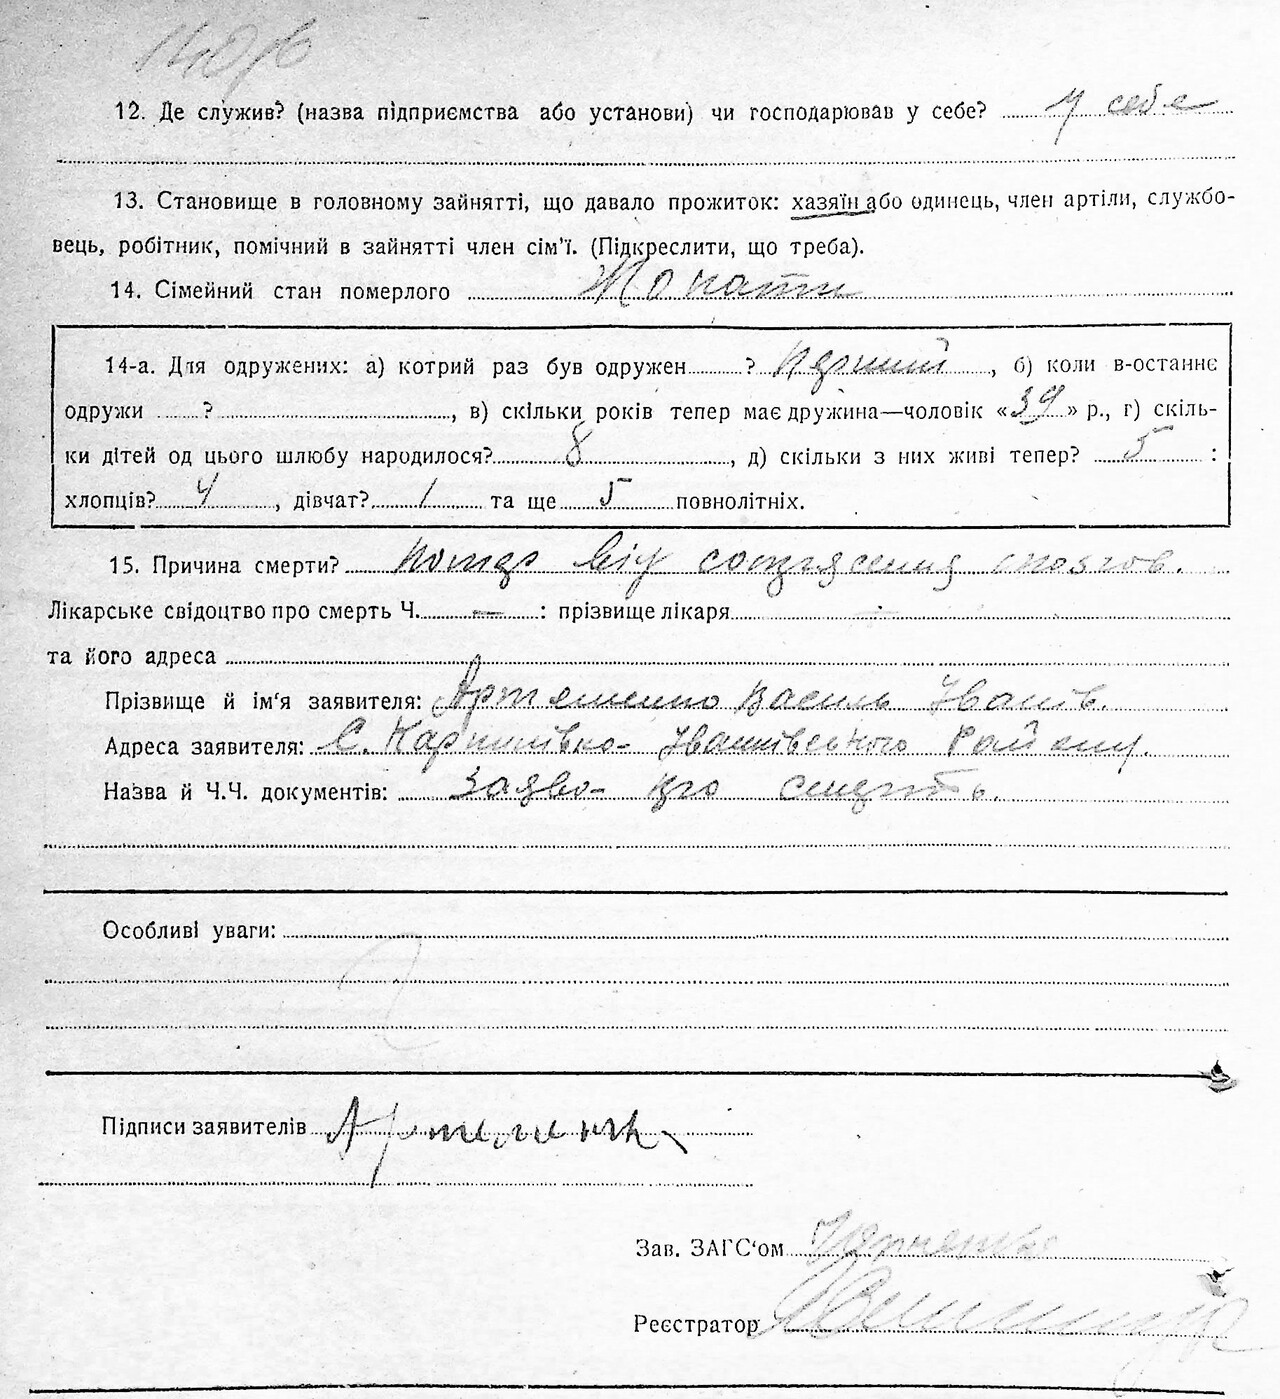 12. Де служив? (назва підприємства або установи) чи господарював у себе? у себе
13. Становище в головному зайнятті, що давало прожиток: хазяїн або одинець, член артіли, службо-
вець, робітник, помічний в зайнятті член сім'ї. (Підкреслити, що треба).
14. Сімейний стан померлого Жонати
14-а. Для одружених: а) котрий раз був одружен ? Перший, б) коли в-останнє
одружи ?, в) скільки років тепер має дружина—чоловік «39» р., г) скіль-
ки дітей од цього шлюбу народилося? 8, д) скільки з них живі тепер? 5 :
хлопців? 4, дівчат? 1 та ще 5 повнолітніх.
15. Причина смерти? від
Лікарське свідоцтво про смерть Ч. — : прізвище лікаря
та його адреса
Прізвище й ім'я заявителя: Артеменко Василь Іванів.
Адреса заявителя: С. Карпилівка Іванківського Району.
Назва й Ч.Ч. документів: Заява про смерть.
Особливі уваги:
Підписи заявителів Артеменка
Зав. ЗАГС'ом
Реєстратор